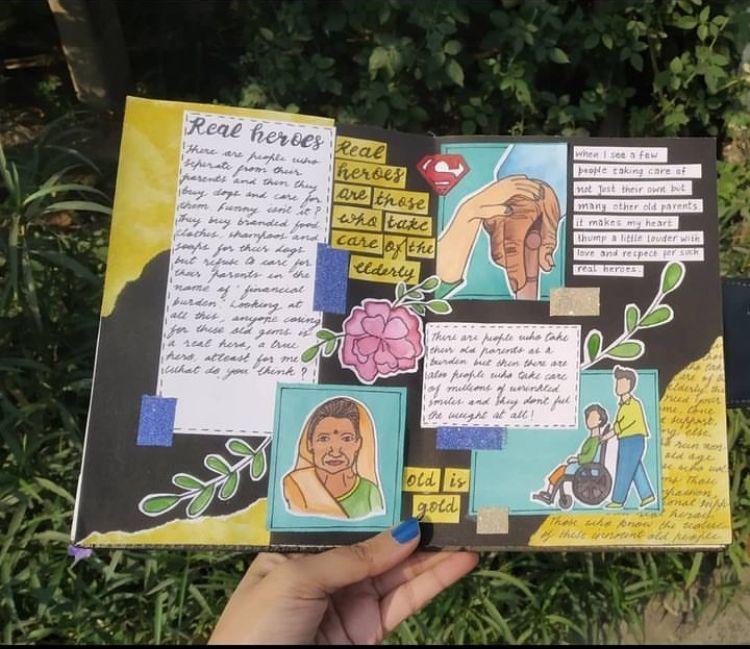 Real heroes
There are people who
seperate from their
parents and then they
buy dogs and care for
them. Funny isn't it?
They buy branded food
clothes, shampoos and
soaps for their dogs
but refuse to care for
their parents in the
name of 'financial
burden'. Looking at
all this, anyone caring
for these old gems is
a real hero, a true
hero, atleast for me
What do you think?
Real
heroes
are those
who take
care of the
elderly
S
When I see a few
people taking care of
not just their own but
many other old parents
it makes my heart
thump a little louder with
love and respect for such
real heroes.
There are people who take
their old parents as a
burden but then there are
also people who take care
of millions of wrinkled
smiles and they don't feel
the weight at all!
old is
gold
old age
Those who know the
of these innocent old people